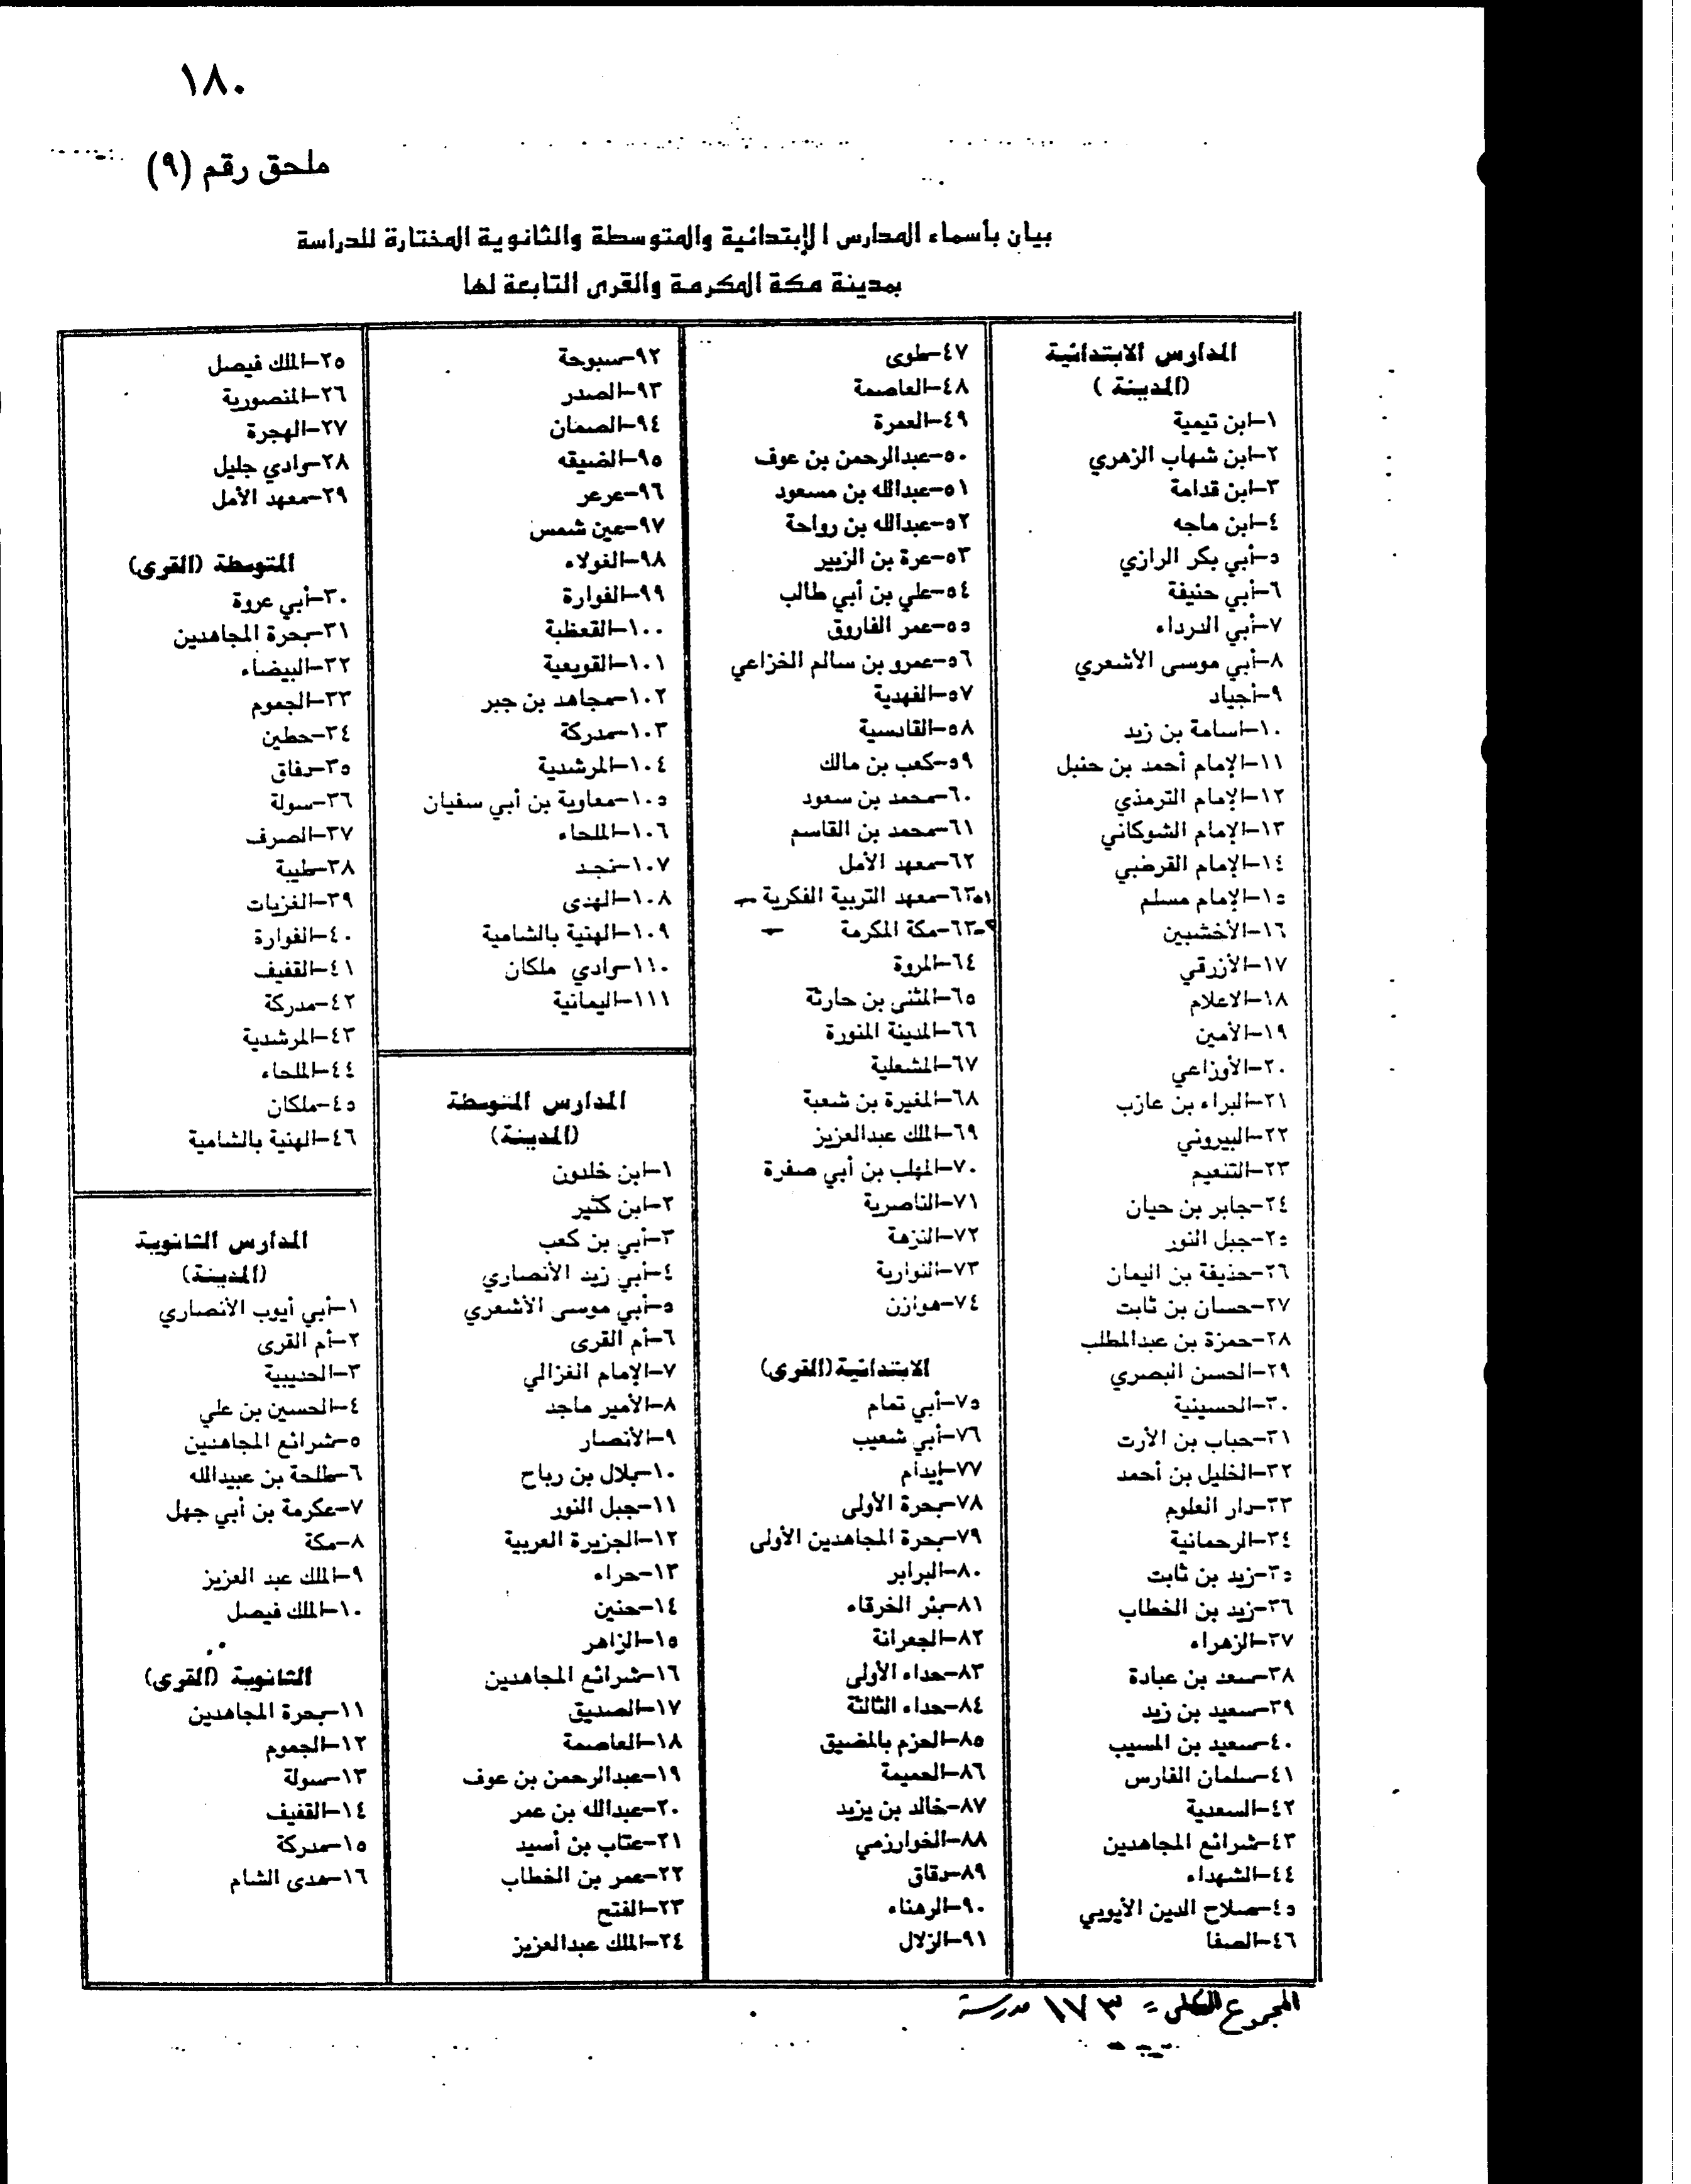 ١٨٠
ملحق رقم (٩)
بيان بأسماء المدارس الإبتدائية والمتوسطة والثانوية المختارة للدراسة
بمدينة مكة المكرمة والقرى التابعة لها
المدارس الابتدائية
(المدينة)
١-ابن تيمية
٢-ابن شهاب الزهري
٣-ابن قدامة
٤-ابن ماجه
٥-أبي بكر الرازي
٦-أبي حنيفة
٧-أبي الدرداء
٨-أبي موسى الأشعري
٩-أجياد
١٠-اسامة بن زيد
١١-الإمام أحمد بن حنبل
١٢-الإمام الترمذي
١٣-الإمام الشوكاني
١٤-الإمام القرضبي
١٥-الإمام مسلم
١٦-الأخشبين
١٧-الأزرقي
١٨-الاعلام
١٩-الأمين
٢٠-الأوزاعي
٢١-البراء بن عازب
٢٢-البيروني
٢٣-التنعيم
٢٤-جابر بن حيان
٢٥-جبل النور
٢٦-حذيفة بن اليمان
٢٧-حسان بن ثابت
٢٨-حمزة بن عبدالمطلب
٢٩-الحسن البصري
٣٠-الحسينية
٣١-حباب بن الأرت
٣٢-الخليل بن أحمد
٣٣-دار العلوم
٣٤-الرحمانية
٣٥-زيد بن ثابت
٣٦-زيد بن الخطاب
٣٧-الزهراء
٣٨-سعد بن عبادة
٣٩-سعيد بن زيد
٤٠-سعيد بن المسيب
٤١-سلمان الفارس
٤٢-السعدية
٤٣-شرائع المجاهدين
٤٤-الشهداء
٤٥-صلاح الدين الأيوبي
٤٦-الصفا
٤٧-طوى
٤٨-العاصمة
٤٩-العمرة
٥٠-عبدالرحمن بن عوف
٥١-عبدالله بن مسعود
٥٢-عبدالله بن رواحة
٥٣-عرة بن الزبير
٥٤-علي بن أبي طالب
٥٥-عمر الفاروق
٥٦-عمرو بن سالم الخزاعي
٥٧-الفهدية
٥٨-القادسية
٥٩-كعب بن مالك
٦٠-محمد بن سعود
٦١-محمد بن القاسم
٦٢-معهد الأمل
٦٣-معهد التربية الفكرية
٦٣-مكة المكرمة
٦٤-المروة
٦٥-المثنى بن حارثة
٦٦-المدينة المنورة
٦٧-المشعلية
٦٨-المغيرة بن شعبة
٦٩-الملك عبدالعزيز
٧٠-المهلب بن أبي صفرة
٧١-الناصرية
٧٢-النزهة
٧٣-النوارية
٧٤-هوازن
الابتدائية (القرى)
٧٥-أبي تمام
٧٦-أبي شعيب
٧٧-إيدام
٧٨-بحرة الأولى
٧٩-بحرة المجاهدين الأولى
٨٠-البرابر
٨١-بئر الخرقاء
٨٢-الجعرانة
٨٣-حداء الأولى
٨٤-حداء الثالثة
٨٥-الحزم بالمضيق
٨٦-الحميمة
٨٧-خالد بن يزيد
٨٨-الخوارزمي
٨٩-دقاق
٩٠-الرهناء
٩١-الزلال
٩٢-سبوحة
٩٣-الصدر
٩٤-الصمان
٩٥-الضيقه
٩٦-عرعر
٩٧-عين شمس
٩٨-الغولاء
٩٩-الفوارة
١٠٠-القعظبة
١٠١-القويعية
١٠٢-مجاهد بن جبر
١٠٣-مدركة
١٠٤-المرشدية
١٠٥-معاوية بن أبي سفيان
١٠٦-الملحاء
١٠٧-نجد
١٠٨-الهدى
١٠٩-الهنية بالشامية
١١٠-وادي ملكان
١١١-اليمانية
المدارس المتوسطة
(المدينة)
١-ابن خلدون
٢-ابن كثير
٣-أبي بن كعب
٤-أبي زيد الأنصاري
٥-أبي موسى الأشعري
٦-أم القرى
٧-الإمام الغزالي
٨-الأمير ماجد
٩-الأنصار
١٠-بلال بن رباح
١١-جبل النور
١٢-الجزيرة العربية
١٣-حراء
١٤-حنين
١٥-الزاهر
١٦-شرائع المجاهدين
١٧-الصديق
١٨-العاصمة
١٩-عبدالرحمن بن عوف
٢٠-عبدالله بن عمر
٢١-عتاب بن أسيد
٢٢-عمر بن الخطاب
٢٣-الفتح
٢٤-الملك عبدالعزيز
٢٥-الملك فيصل
٢٦-المنصورية
٢٧-الهجرة
٢٨-وادي جليل
٢٩-معهد الأمل
المتوسطة (القرى)
٣٠-أبي عروة
٣١-بحرة المجاهدين
٣٢-البيضاء
٣٣-الجموم
٣٤-حطين
٣٥-دفاق
٣٦-سولة
٣٧-الصرف
٣٨-طيبة
٣٩-الغزيات
٤٠-الفوارة
٤١-القفيف
٤٢-مدركة
٤٣-المرشدية
٤٤-الملحاء
٤٥-ملكان
٤٦-الهنية بالشامية
المدارس الثانوية
(المدينة)
١-أبي أيوب الأنصاري
٢-أم القرى
٣-الحديبية
٤-الحسين بن علي
٥-شرائع المجاهدين
٦-طلحة بن عبيدالله
٧-عكرمة بن أبي جهل
٨-مكة
٩-الملك عبد العزيز
١٠-الملك فيصل
الثانوية (القرى)
١١-بحرة المجاهدين
١٢-الجموم
١٣-سولة
١٤-القفيف
١٥-مدركة
١٦-هدى الشام
المجموع الكلي = ١٧٣ مدرسة